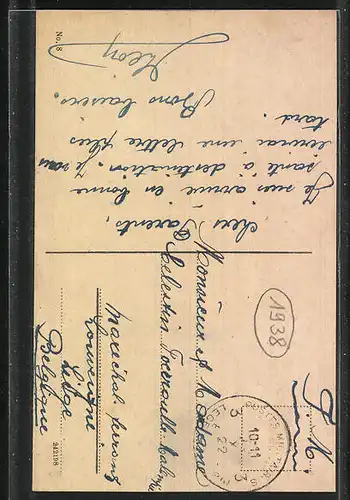 Chers Parents,
Je suis arrivé en bonne
santé à destination. Je vous
une lettre plus
tard.
Bons baisers.
Léon
No. 8
Monsieur et Madame
Maréchal ferrant
Louveigné
Liège
Belgique
P. M.
1938
POSTES MILITAIRES
3 V 3
10-11
242198